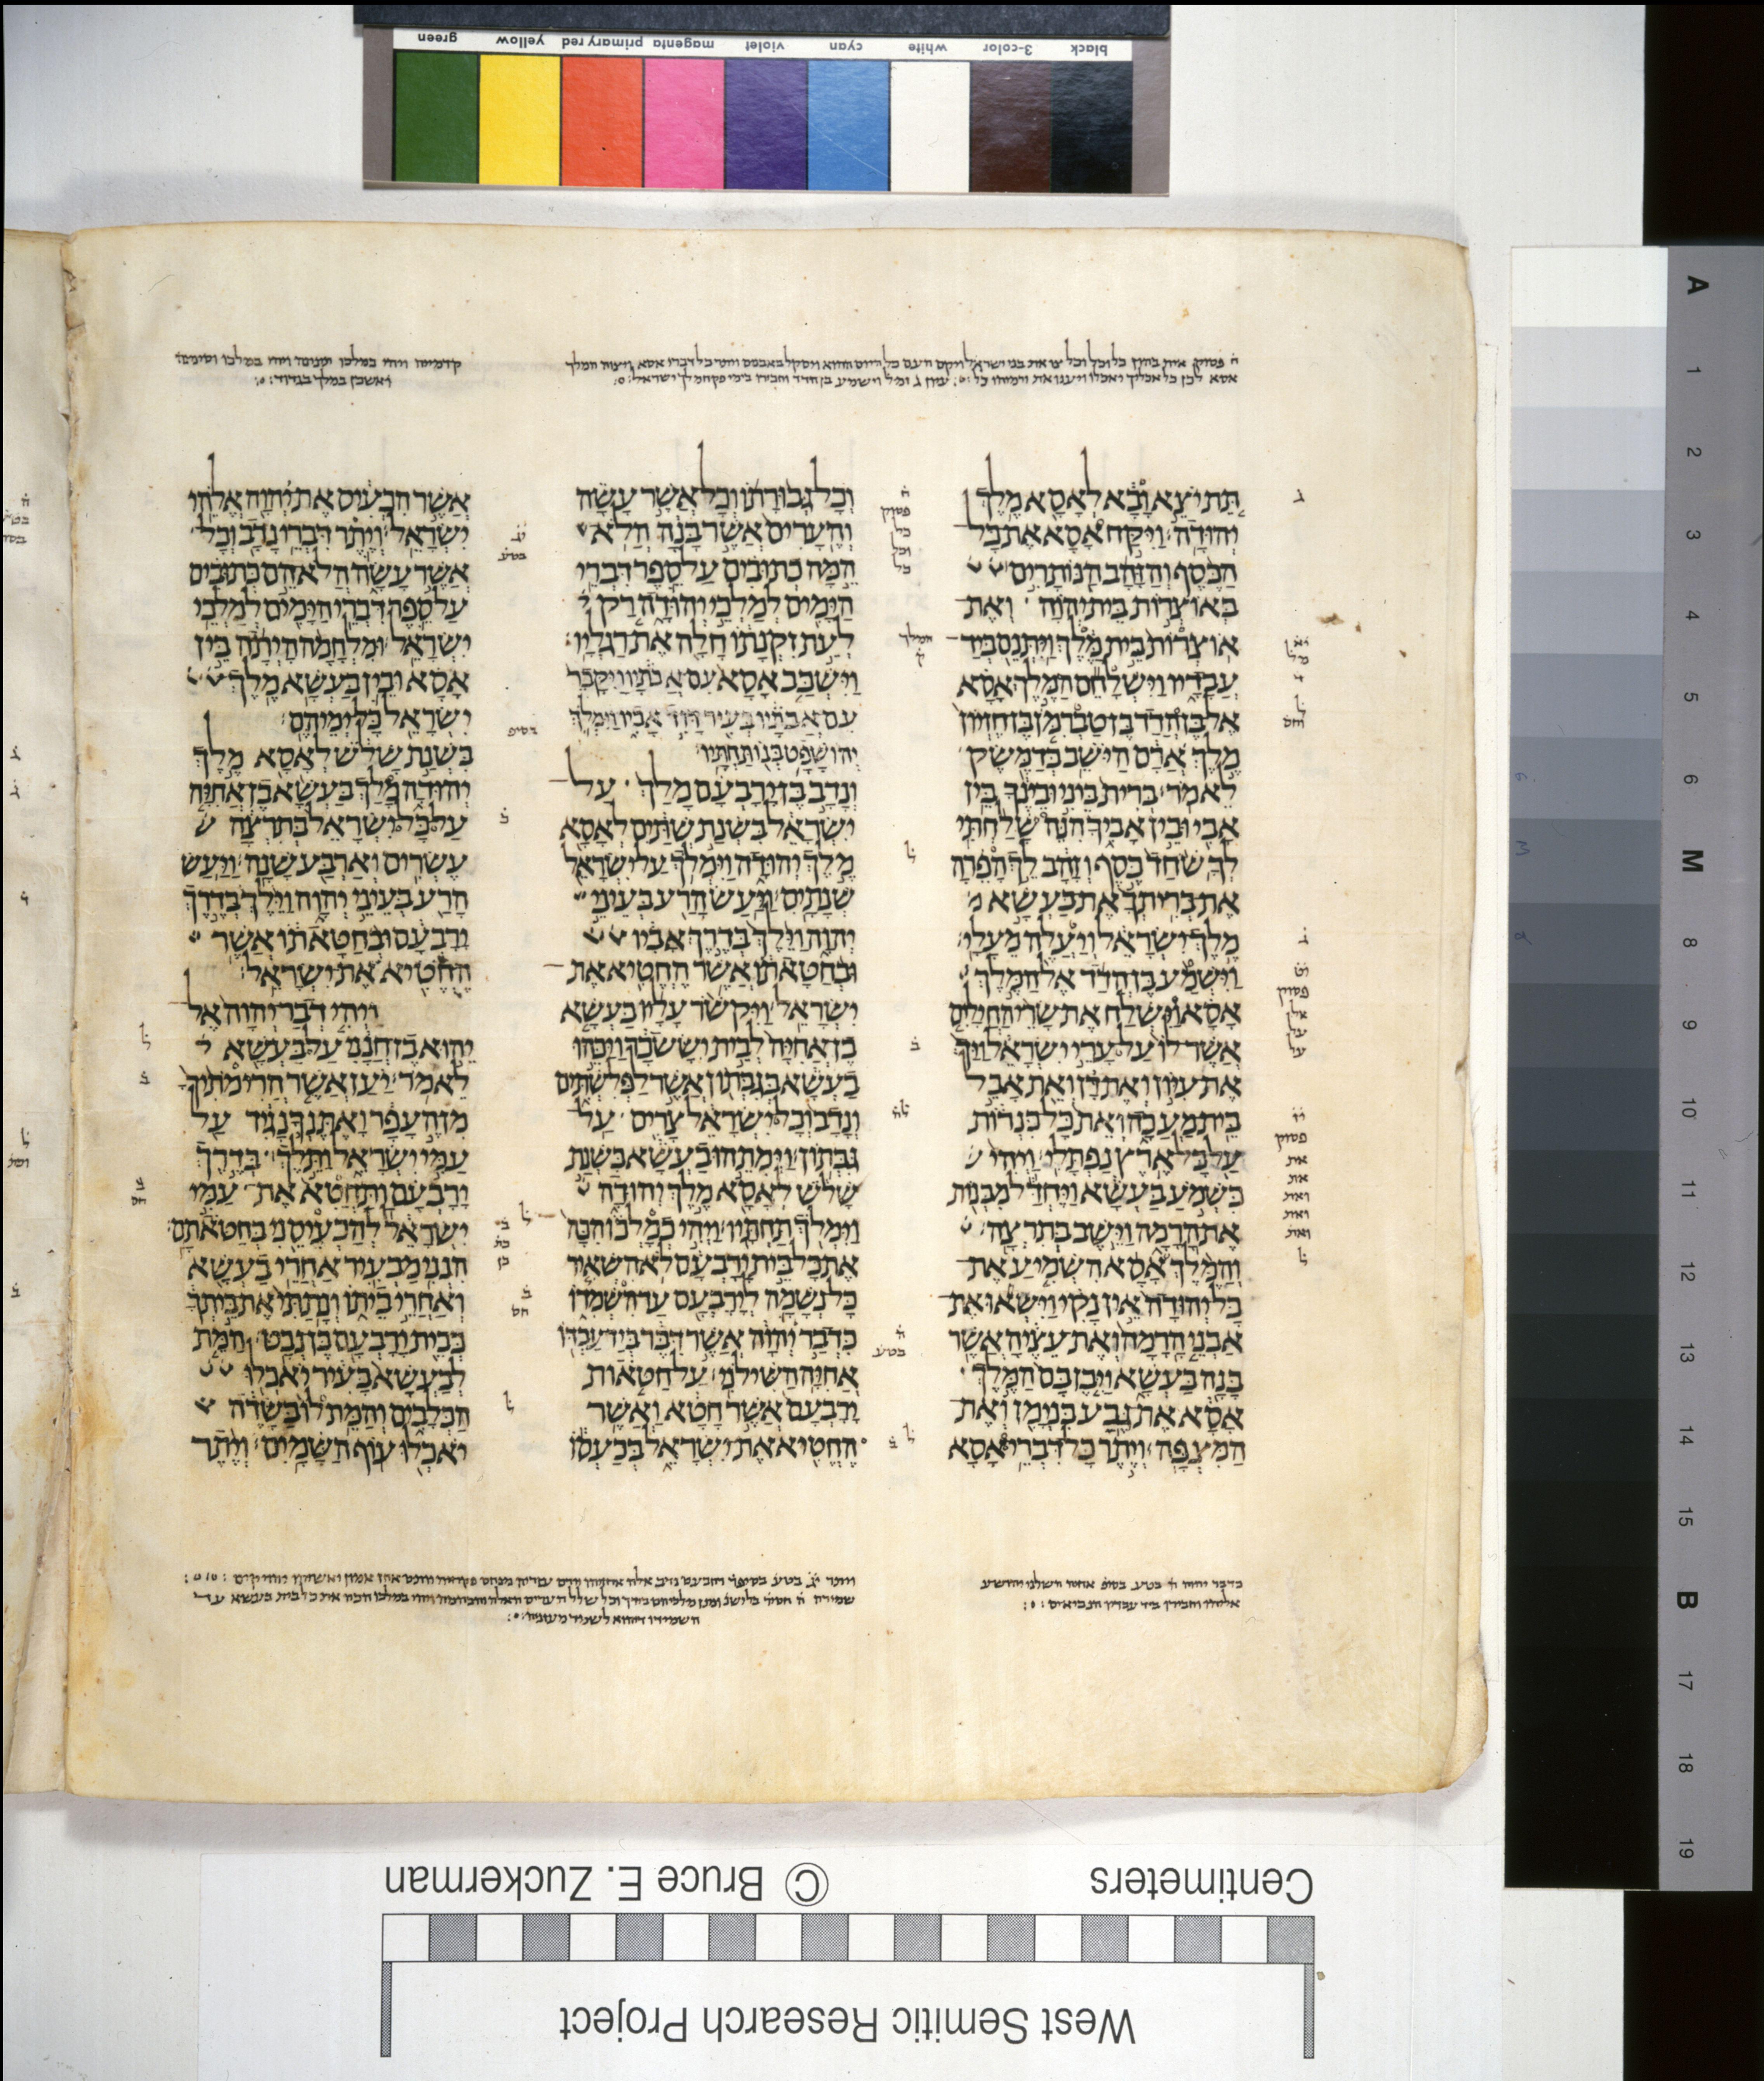 green yellow primary red magenta violet cyan white 3-color black
תֵּת יֹצֵא וָבָא לְאָסָא מֶלֶךְ
יְהוּדָה׃ וַיִּקַּח אָסָא אֶת כָּל
הַכֶּסֶף וְהַזָּהָב הַנּוֹתָרִים
בְּאוֹצְרוֹת בֵּית יְהוָה וְאֶת
אוֹצְרוֹת בֵּית מֶלֶךְ וַיִּתְּנֵם בְּיַד
עֲבָדָיו וַיִּשְׁלָחֵם הַמֶּלֶךְ אָסָא
אֶל בֶּן הֲדַד בֶּן טַבְרִמֹּן בֶּן חֶזְיוֹן
מֶלֶךְ אֲרָם הַיֹּשֵׁב בְּדַמֶּשֶׂק
לֵאמֹר׃ בְּרִית בֵּינִי וּבֵינֶךָ בֵּין
אָבִי וּבֵין אָבִיךָ הִנֵּה שָׁלַחְתִּי
לְךָ שֹׁחַד כֶּסֶף וְזָהָב לֵךְ הָפֵרָה
אֶת בְּרִיתְךָ אֶת בַּעְשָׁא
מֶלֶךְ יִשְׂרָאֵל וְיַעֲלֶה מֵעָלָי׃
וַיִּשְׁמַע בֶּן הֲדַד אֶל הַמֶּלֶךְ
אָסָא וַיִּשְׁלַח אֶת שָׂרֵי הַחֲיָלִים
אֲשֶׁר לוֹ עַל עָרֵי יִשְׂרָאֵל וַיַּךְ
אֶת עִיּוֹן וְאֶת דָּן וְאֵת אָבֵל
בֵּית מַעֲכָה וְאֵת כָּל כִּנְרוֹת
עַל כָּל אֶרֶץ נַפְתָּלִי׃ וַיְהִי
כִּשְׁמֹעַ בַּעְשָׁא וַיֶּחְדַּל מִבְּנוֹת
אֶת הָרָמָה וַיֵּשֶׁב בְּתִרְצָה׃
וְהַמֶּלֶךְ אָסָא הִשְׁמִיעַ אֶת
כָּל יְהוּדָה אֵין נָקִי וַיִּשְׂאוּ אֶת
אַבְנֵי הָרָמָה וְאֶת עֵצֶיהָ אֲשֶׁר
בָּנָה בַּעְשָׁא וַיִּבֶן בָּם הַמֶּלֶךְ
אָסָא אֶת גֶּבַע בִּנְיָמִן וְאֶת
הַמִּצְפָּה׃ וְיֶתֶר כָּל דִּבְרֵי אָסָא
וְכָל גְּבוּרָתוֹ וְכָל אֲשֶׁר עָשָׂה
וְהֶעָרִים אֲשֶׁר בָּנָה הֲלֹא
הֵמָּה כְתוּבִים עַל סֵפֶר דִּבְרֵי
הַיָּמִים לְמַלְכֵי יְהוּדָה רַק
לְעֵת זִקְנָתוֹ חָלָה אֶת רַגְלָיו׃
וַיִּשְׁכַּב אָסָא עִם אֲבֹתָיו וַיִּקָּבֵר
עִם אֲבֹתָיו בְּעִיר דָּוִד אָבִיו וַיִּמְלֹךְ
יְהוֹשָׁפָט בְּנוֹ תַּחְתָּיו׃
וְנָדָב בֶּן יָרָבְעָם מָלַךְ עַל
יִשְׂרָאֵל בִּשְׁנַת שְׁתַּיִם לְאָסָא
מֶלֶךְ יְהוּדָה וַיִּמְלֹךְ עַל יִשְׂרָאֵל
שְׁנָתָיִם׃ וַיַּעַשׂ הָרַע בְּעֵינֵי
יְהוָה וַיֵּלֶךְ בְּדֶרֶךְ אָבִיו
וּבְחַטָּאתוֹ אֲשֶׁר הֶחֱטִיא אֶת
יִשְׂרָאֵל׃ וַיִּקְשֹׁר עָלָיו בַּעְשָׁא
בֶן אֲחִיָּה לְבֵית יִשָּׂשכָר וַיַּכֵּהוּ
בַעְשָׁא בְּגִבְּתוֹן אֲשֶׁר לַפְּלִשְׁתִּים
וְנָדָב וְכָל יִשְׂרָאֵל צָרִים עַל
גִּבְּתוֹן׃ וַיְמִתֵהוּ בַעְשָׁא בִּשְׁנַת
שָׁלֹשׁ לְאָסָא מֶלֶךְ יְהוּדָה
וַיִּמְלֹךְ תַּחְתָּיו׃ וַיְהִי כְמָלְכוֹ הִכָּה
אֶת כָּל בֵּית יָרָבְעָם לֹא הִשְׁאִיר
כָּל נְשָׁמָה לְיָרָבְעָם עַד הִשְׁמִדוֹ
כִּדְבַר יְהוָה אֲשֶׁר דִּבֶּר בְּיַד עַבְדּוֹ
אֲחִיָּה הַשִּׁילֹנִי׃ עַל חַטֹּאות
יָרָבְעָם אֲשֶׁר חָטָא וַאֲשֶׁר
הֶחֱטִיא אֶת יִשְׂרָאֵל בְּכַעְסוֹ
אֲשֶׁר הִכְעִיס אֶת יְהוָה אֱלֹהֵי
יִשְׂרָאֵל׃ וְיֶתֶר דִּבְרֵי נָדָב וְכָל
אֲשֶׁר עָשָׂה הֲלֹא הֵם כְּתוּבִים
עַל סֵפֶר דִּבְרֵי הַיָּמִים לְמַלְכֵי
יִשְׂרָאֵל׃ וּמִלְחָמָה הָיְתָה בֵּין
אָסָא וּבֵין בַּעְשָׁא מֶלֶךְ
יִשְׂרָאֵל כָּל יְמֵיהֶם׃
בִּשְׁנַת שָׁלֹשׁ לְאָסָא מֶלֶךְ
יְהוּדָה מָלַךְ בַּעְשָׁא בֶן אֲחִיָּה
עַל כָּל יִשְׂרָאֵל בְּתִרְצָה
עֶשְׂרִים וְאַרְבַּע שָׁנָה׃ וַיַּעַשׂ
הָרַע בְּעֵינֵי יְהוָה וַיֵּלֶךְ בְּדֶרֶךְ
יָרָבְעָם וּבְחַטָּאתוֹ אֲשֶׁר
הֶחֱטִיא אֶת יִשְׂרָאֵל׃
וַיְהִי דְבַר יְהוָה אֶל
יֵהוּא בֶן חֲנָנִי עַל בַּעְשָׁא
לֵאמֹר׃ יַעַן אֲשֶׁר הֲרִימֹתִיךָ
מִן הֶעָפָר וָאֶתֶּנְךָ נָגִיד עַל
עַמִּי יִשְׂרָאֵל וַתֵּלֶךְ בְּדֶרֶךְ
יָרָבְעָם וַתַּחֲטִא אֶת עַמִּי
יִשְׂרָאֵל לְהַכְעִיסֵנִי בְּחַטֹּאתָם׃
הִנְנִי מַבְעִיר אַחֲרֵי בַעְשָׁא
וְאַחֲרֵי בֵיתוֹ וְנָתַתִּי אֶת בֵּיתְךָ
כְּבֵית יָרָבְעָם בֶּן נְבָט׃ הַמֵּת
לְבַעְשָׁא בָּעִיר יֹאכְלוּ
הַכְּלָבִים וְהַמֵּת לוֹ בַּשָּׂדֶה
יֹאכְלוּ עוֹף הַשָּׁמָיִם׃ וְיֶתֶר
A 1 2 3 4 5 6 M 8 9 10 11 12 13 14 15 B 17 18 19
Centimeters
© Bruce E. Zuckerman
West Semitic Research Project